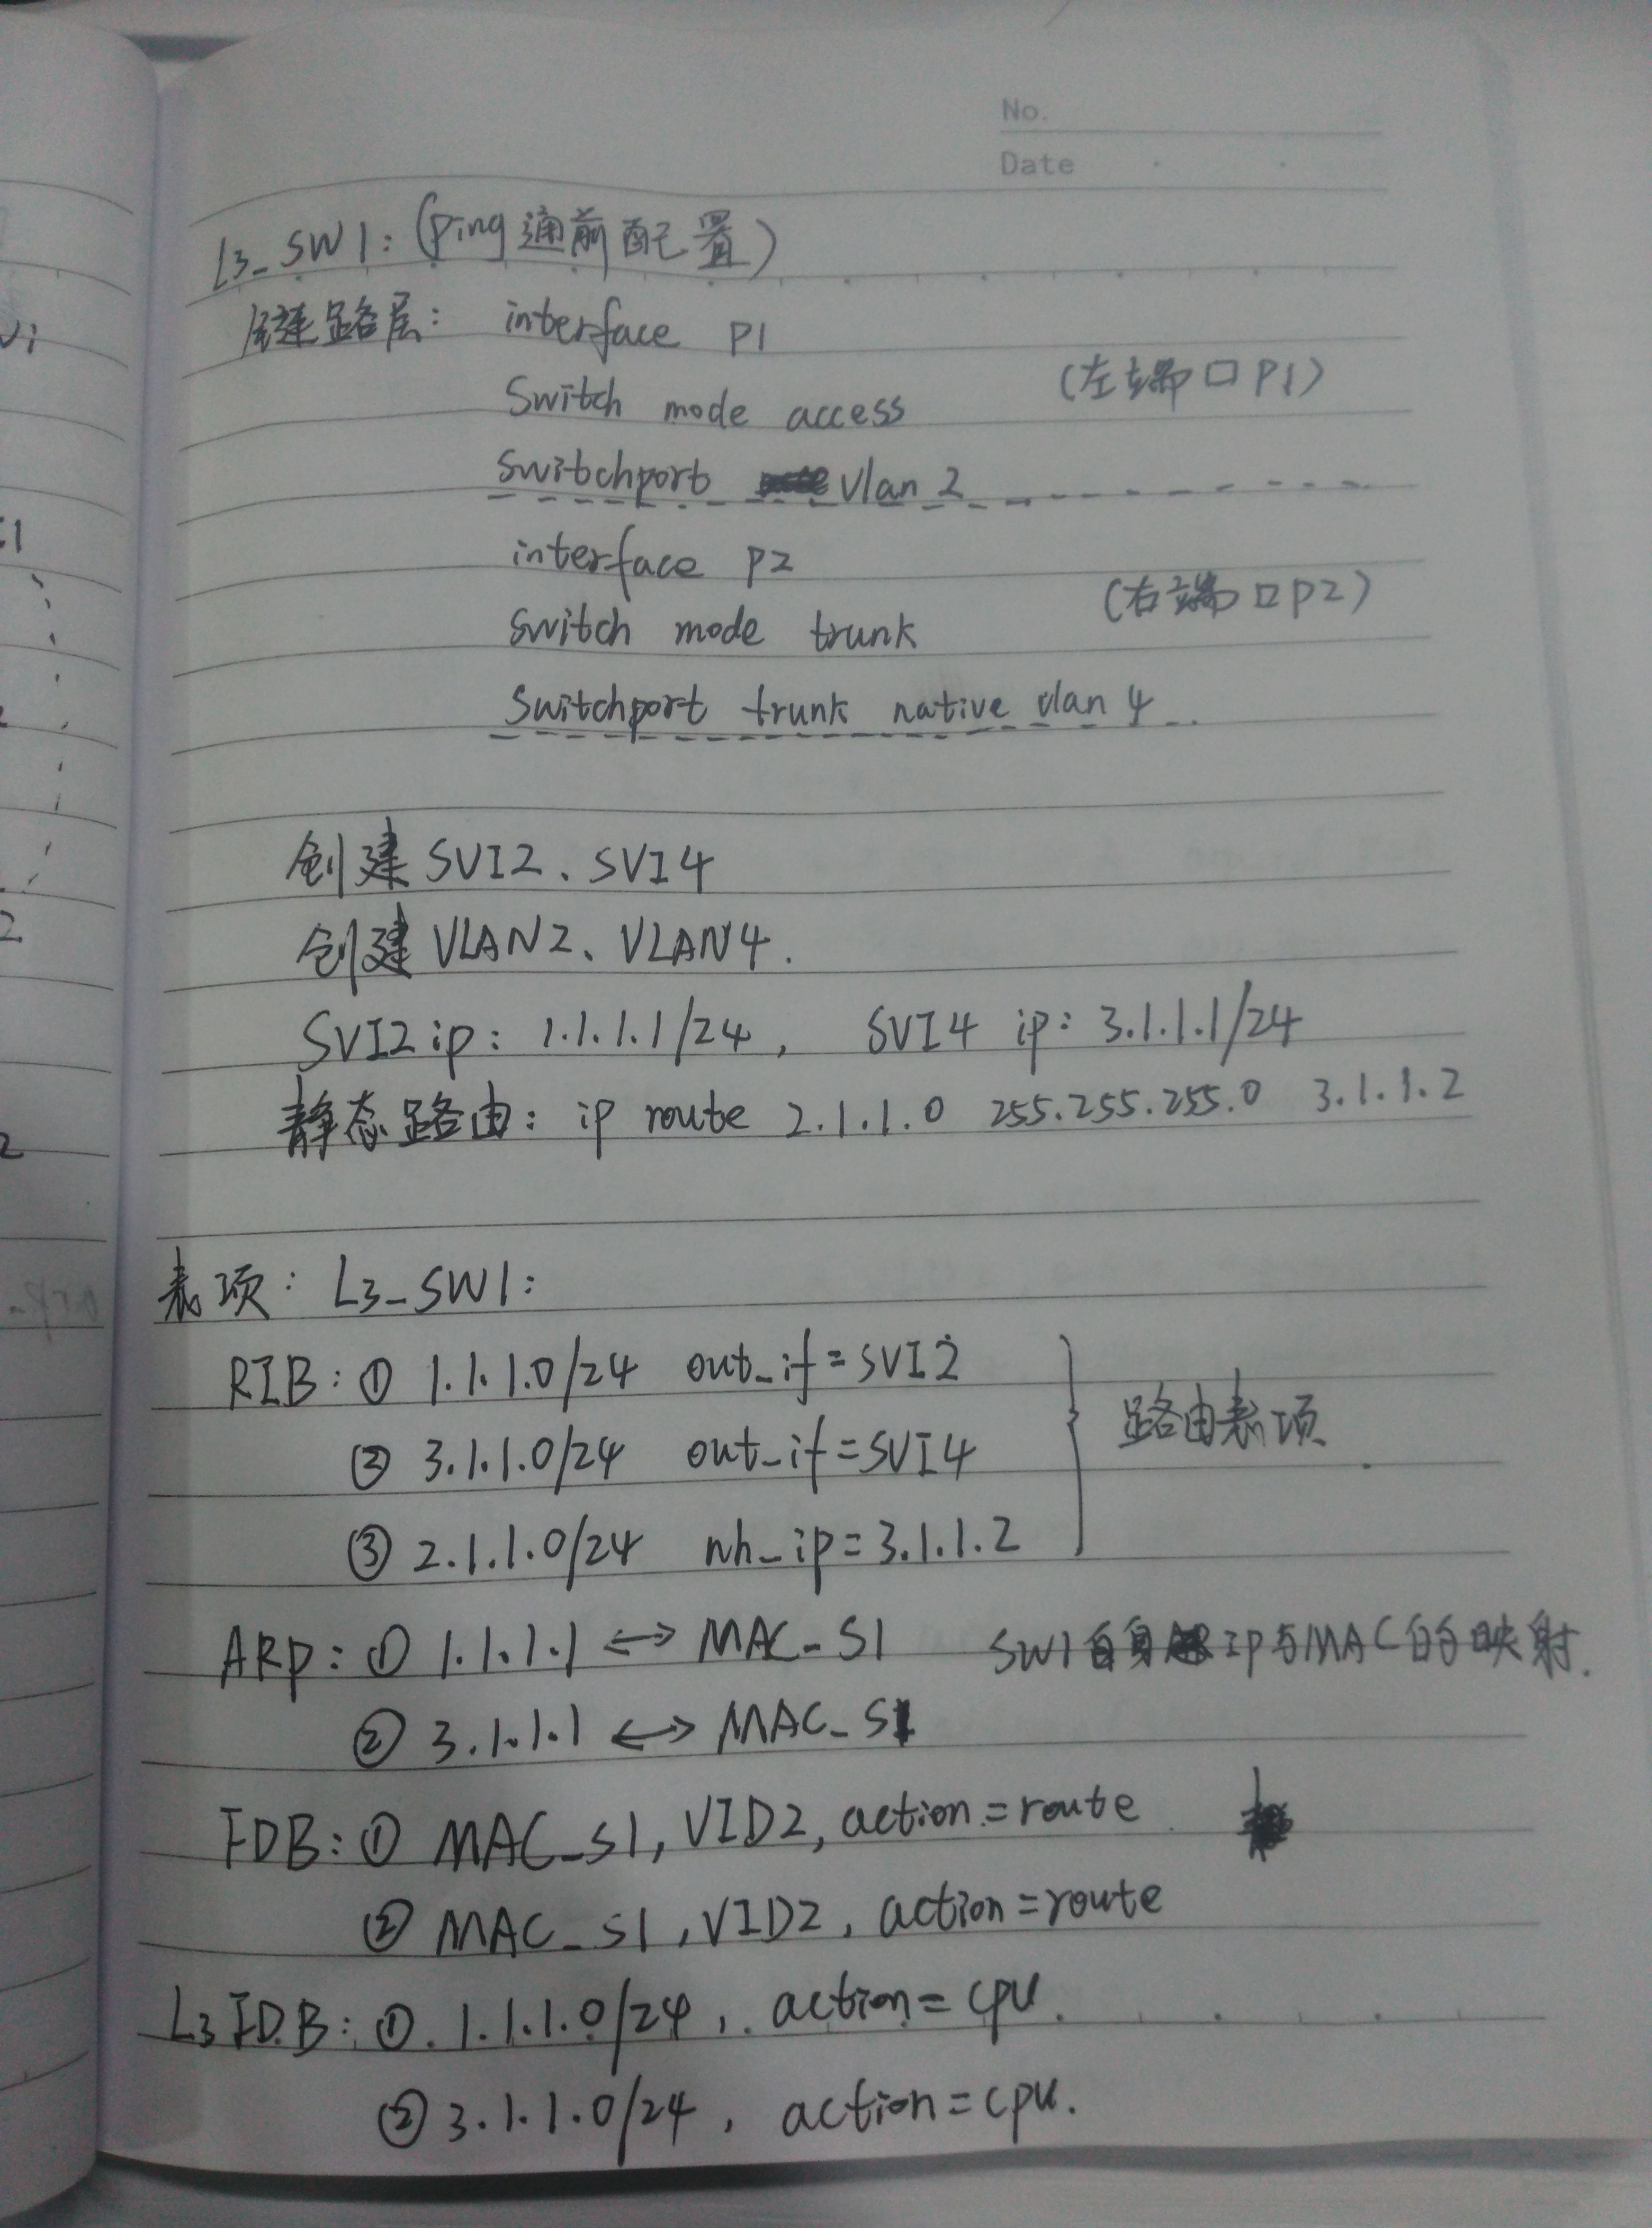 No.
Date
L3_SW1:(Ping通前配置)
链路层: interface P1
Switch mode access (左端口P1)
Switchport vlan 2
interface P2
switch mode trunk (右端口P2)
Switchport trunk native vlan 4
创建SVI2、SVI4
创建VLAN2、VLAN4.
SVI2 ip: 1.1.1.1/24, SVI4 ip: 3.1.1.1/24
静态路由: ip route 2.1.1.0 255.255.255.0 3.1.1.2
表项: L3_SW1:
RIB: ① 1.1.1.0/24 out_if=SVI2
② 3.1.1.0/24 out_if=SVI4
路由表项
③ 2.1.1.0/24 nh_ip=3.1.1.2
ARP: ① 1.1.1.1 <-> MAC_S1 SW1自身ip与MAC的映射.
② 3.1.1.1 <-> MAC_S1
FDB: ① MAC_S1, VID2, action=route
② MAC_S1, VID2, action=route
L3FDB: ①. 1.1.1.0/24, action=cpu.
② 3.1.1.0/24, action=cpu.